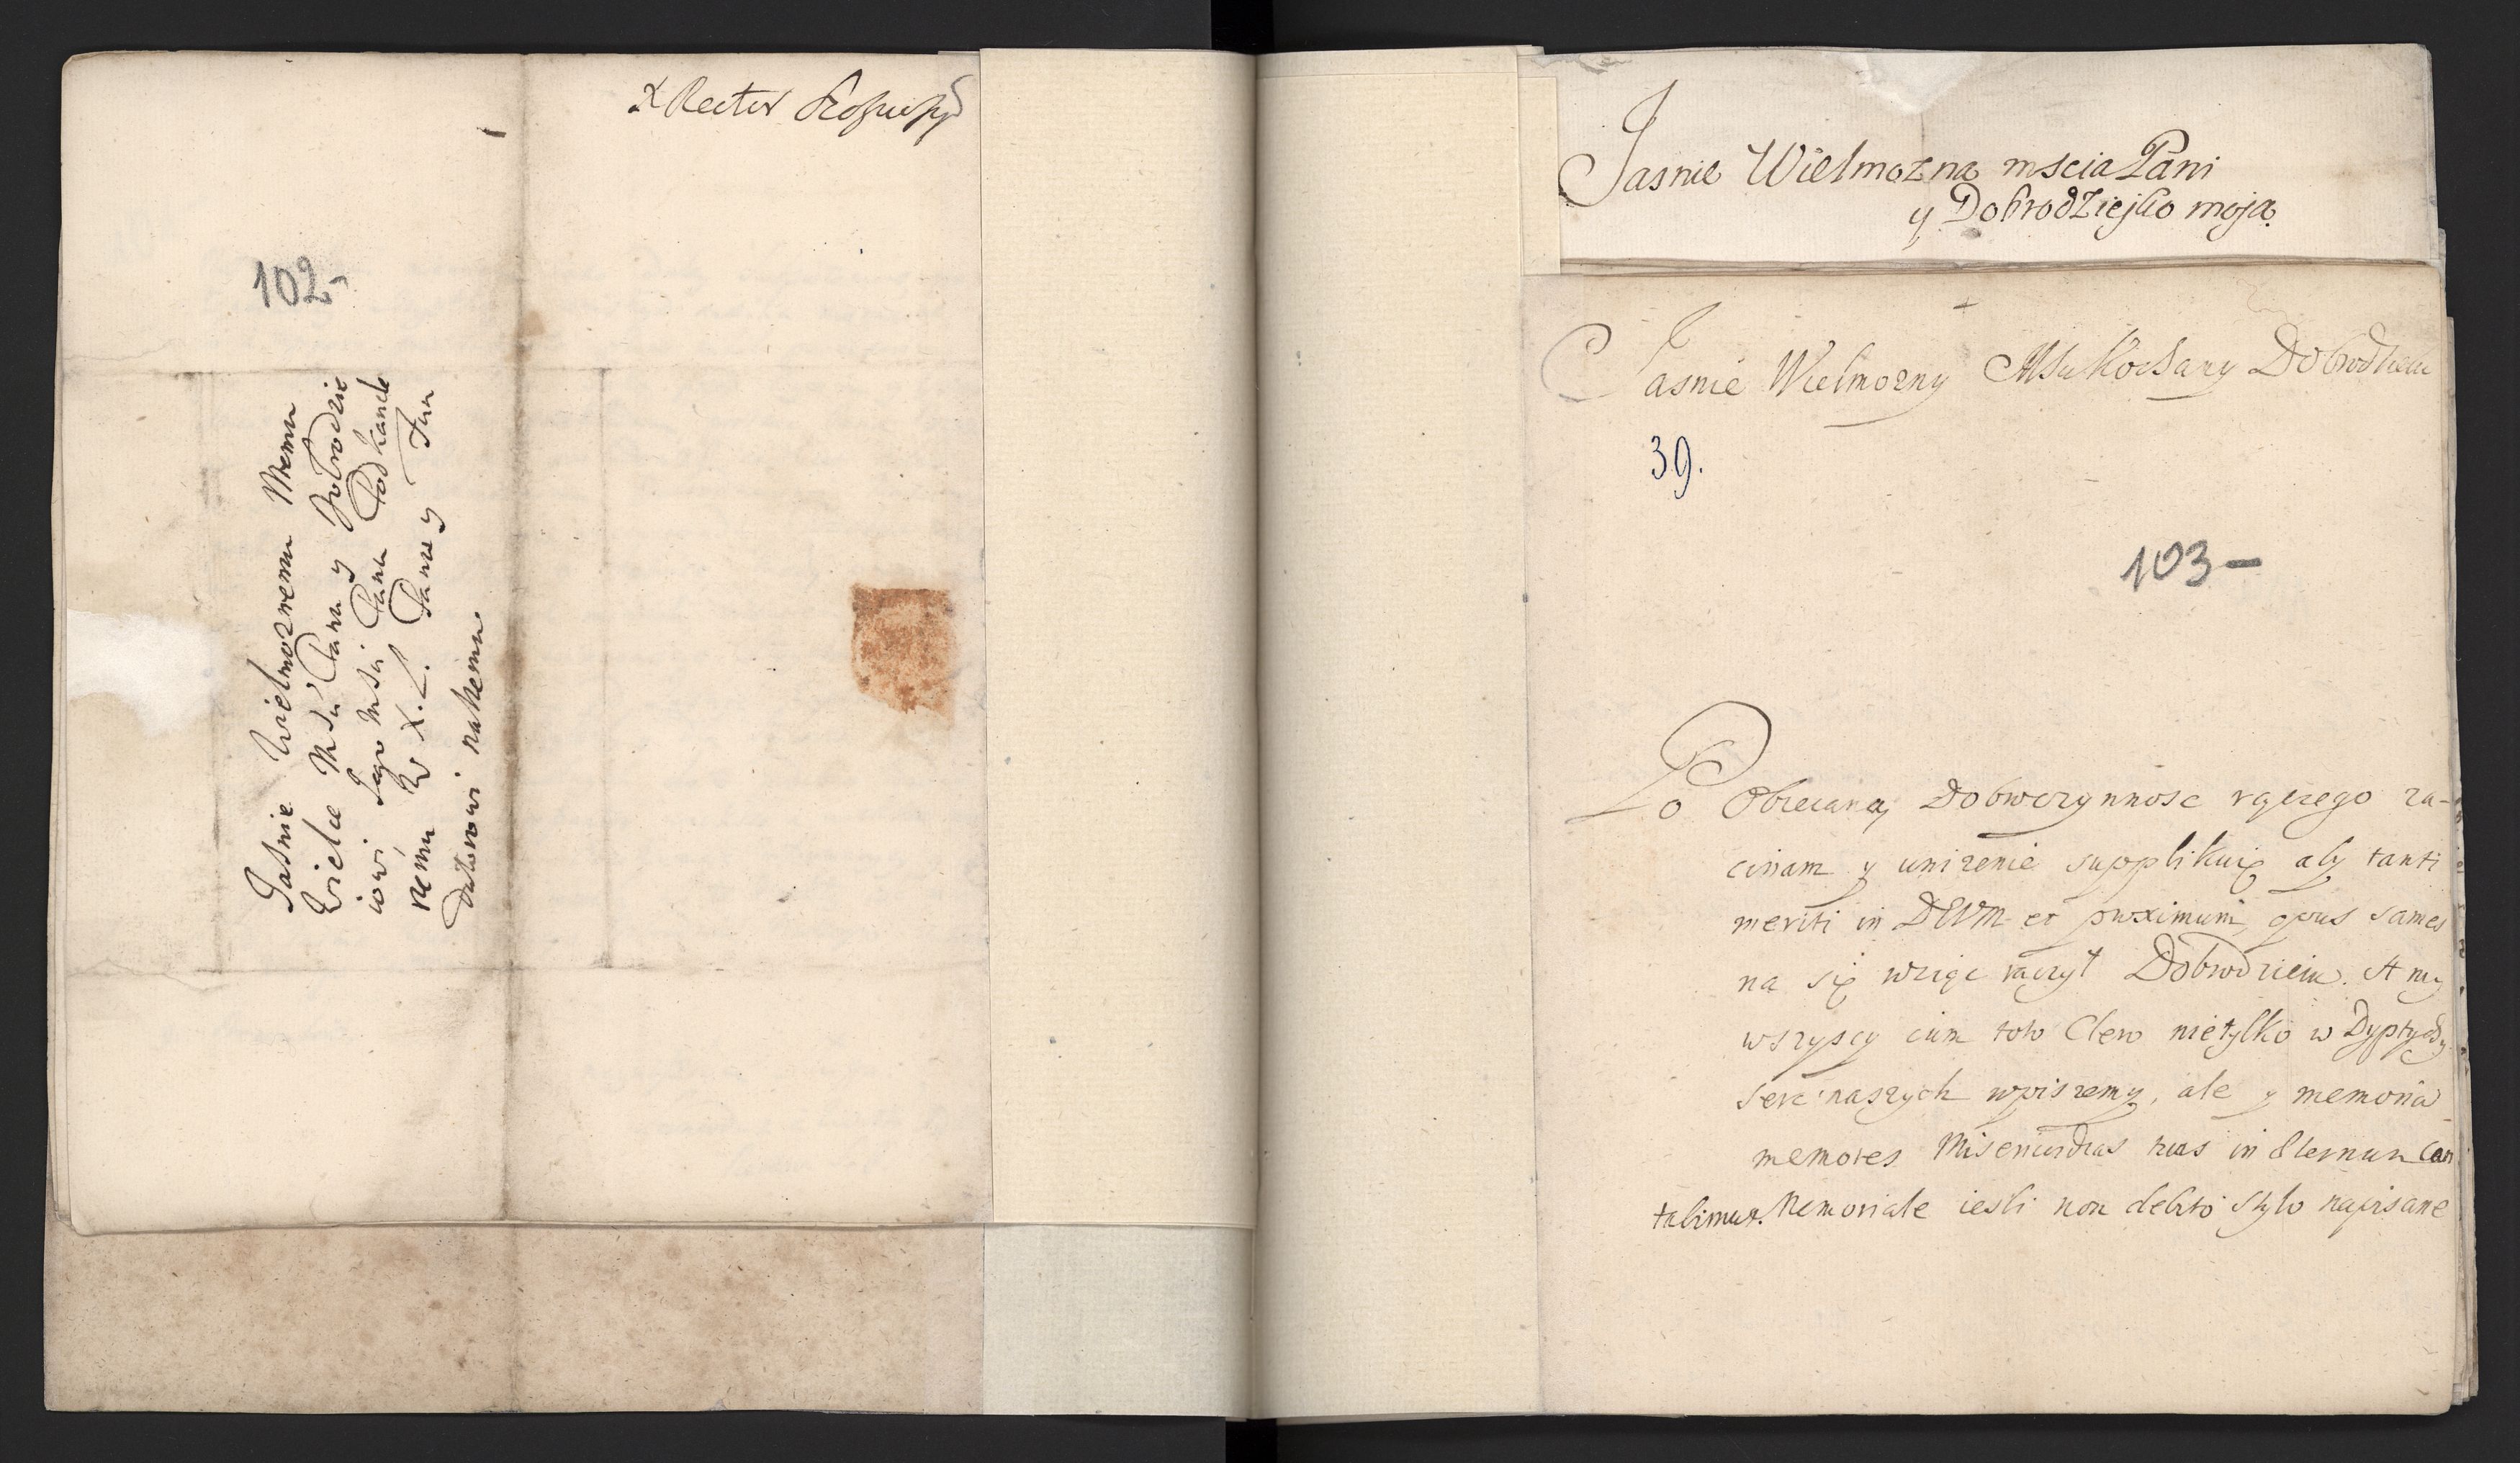 X Rector
102-
Jasnie Wielmoznemu Memu
Wielce Msci Panu y Dobrodzie
iowi Jego Msci Panu Podkancle
rzemu W. X. L. Panu y Fun
datorowi naszemu
Jasnie Wielmozna mscia Pani
y Dobrodziejko moja
Jasnie Wielmozny Msci Kochany Dobrodzieiu
39.
103-
Po Obiecaney Dobroczynnosc rączego za-
cinam y unizenie supplikuię aby tanti
meriti in DEUM et proximum, opus sames
na się wziąc raczył Dobrodzieiu. A my
wszyscy cum toto Clero nietylko w Dyptychy
serc naszych wpiszemy, ale y memoria
memores Misericordias tuas in æternum can
tabimus. Memoriale iesli non debito stylo napisane